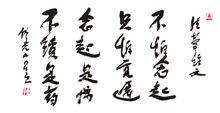 不怕念起
只怕覺遲
念起是病
不續是藥